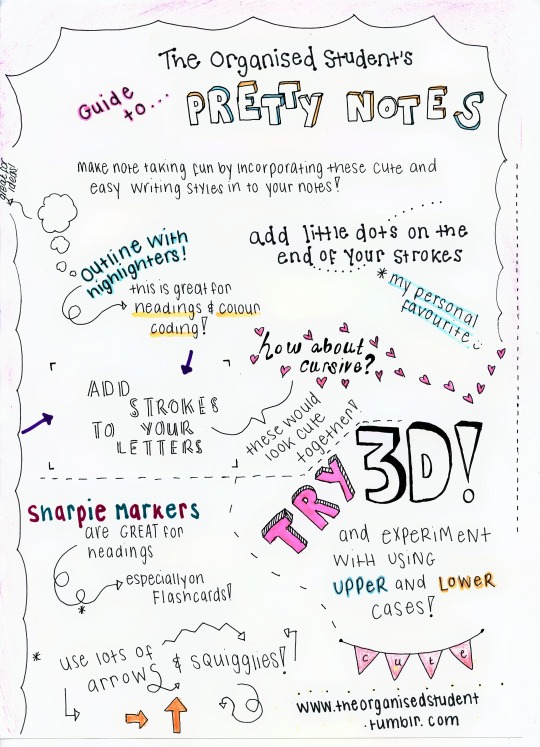 The Organised Student's
Guide to...
PRETTY NOTES
make note taking fun by incorporating these cute and
easy writing styles in to your notes!
great for
ideas!
Outline with
highlighters!
this is great for
headings & colour
coding!
add little dots on the
end of your strokes
*my personal
favourite
how about
cursive?
ADD
STROKES
TO YOUR
LETTERS
these would
look cute
together!
TRY 3D!
Sharpie Markers
are GREAT for
headings
especially on
Flashcards!
*
and EXPERIMENT
WITH USING
UPPER and LOWER
CASES!
* USE LOTS OF
arrows & squigglies!
cute
www.theorganisedstudent
.tumblr.com